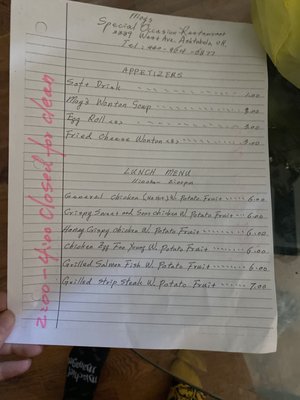 Moy's
Special Occasion Restaurant
West Ave. Ashtabula, OH.
Tel:
APPETIZERS
Soft Drink 1.00
Moy's Wonton Soup 3.00
Egg Roll (2) 3.00
Fried Cheese Wonton (8) 3.00
LUNCH MENU
General Chicken W. Potato Fruit 6.00
Crispy Sweet and Sour Chicken W. Potato Fruit 6.00
Honey Crispy Chicken W. Potato Fruit 6.00
Chicken Egg Foo Young W. Potato Fruit 6.00
Grilled Salmon Fish W. Potato Fruit 6.00
Grilled Strip Steak W. Potato Fruit 7.00
2:00-4:00 Closed for clean